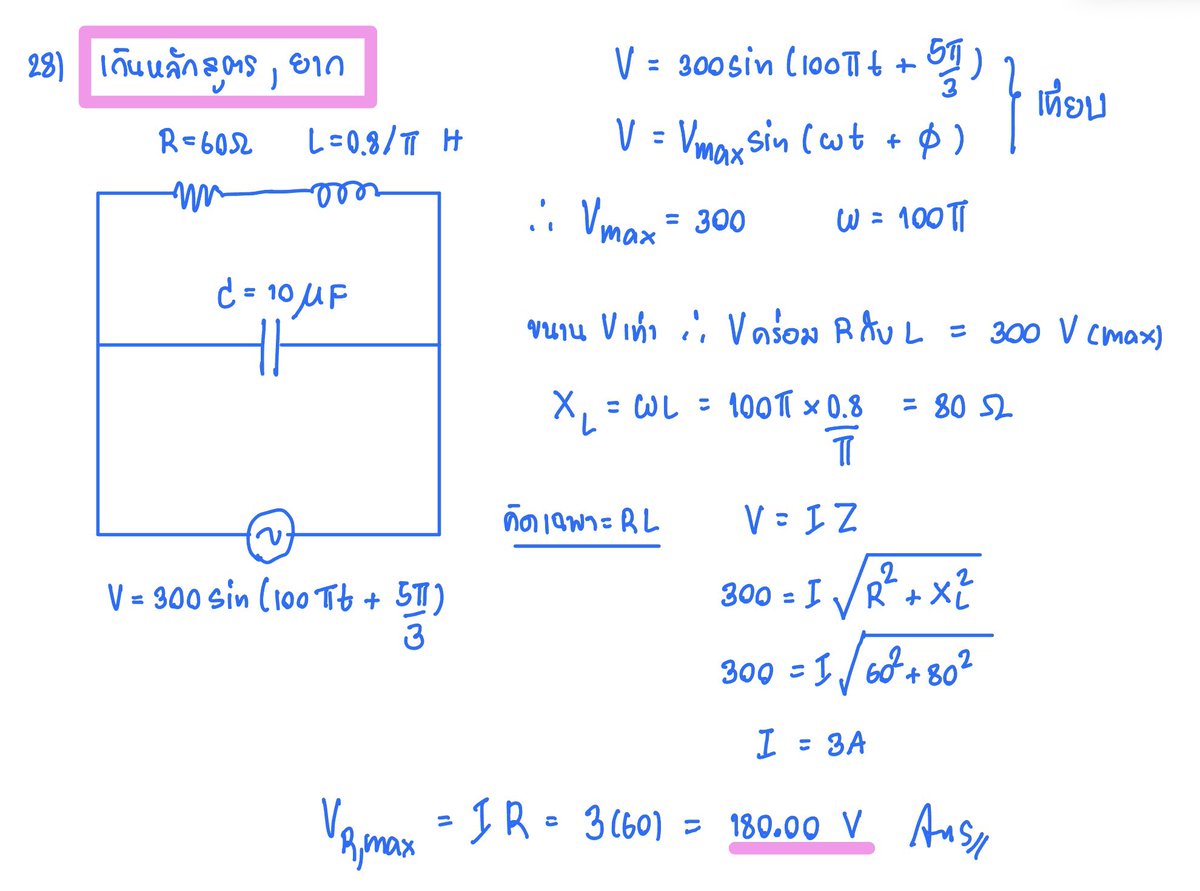 28) เกินหลักสูตร, ยาก
R=60Ω L=0.8/π H
C = 10 μF
V = 300 sin (100 πt + 5π/3)
V = 300 sin (100πt + 5π/3)
V = Vmax sin (ωt + ϕ)
เทียบ
∴ Vmax = 300 ω = 100π
ขนาน V เท่า ∴ V คร่อม R กับ L = 300 V (max)
XL = ωL = 100π × 0.8/π = 80 Ω
คิดเฉพาะ RL V = I Z
300 = I √(R² + XL²)
300 = I √(60² + 80²)
I = 3A
VR,max = I R = 3(60) = 180.00 V Ans//